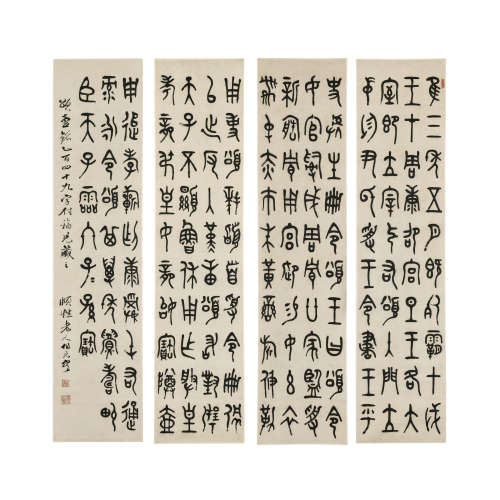 隹三年五月既死霸甲戌
王才周康卲宮旦王各大
室即立宰引右頌入門立
中廷尹氏受王令書王乎
史虢生冊令頌王曰頌令
女官𤔲成周貯廿家監𤔲
新造貯用宮御易女玄衣
黹屯赤巿朱黃䜌旂攸勒
用事頌拜稽首受令冊佩
以出反入堇章頌敢對揚
天子不顯魯休用乍朕皇
考龏叔皇母龏姒寶尊壺
用追孝祈匄康虔屯右通
彔永令頌其萬年眉壽畯
臣天子霝冬子=孫=寶
頌壺銘乙百四十九字付福兒藏之 頤性老人伯元